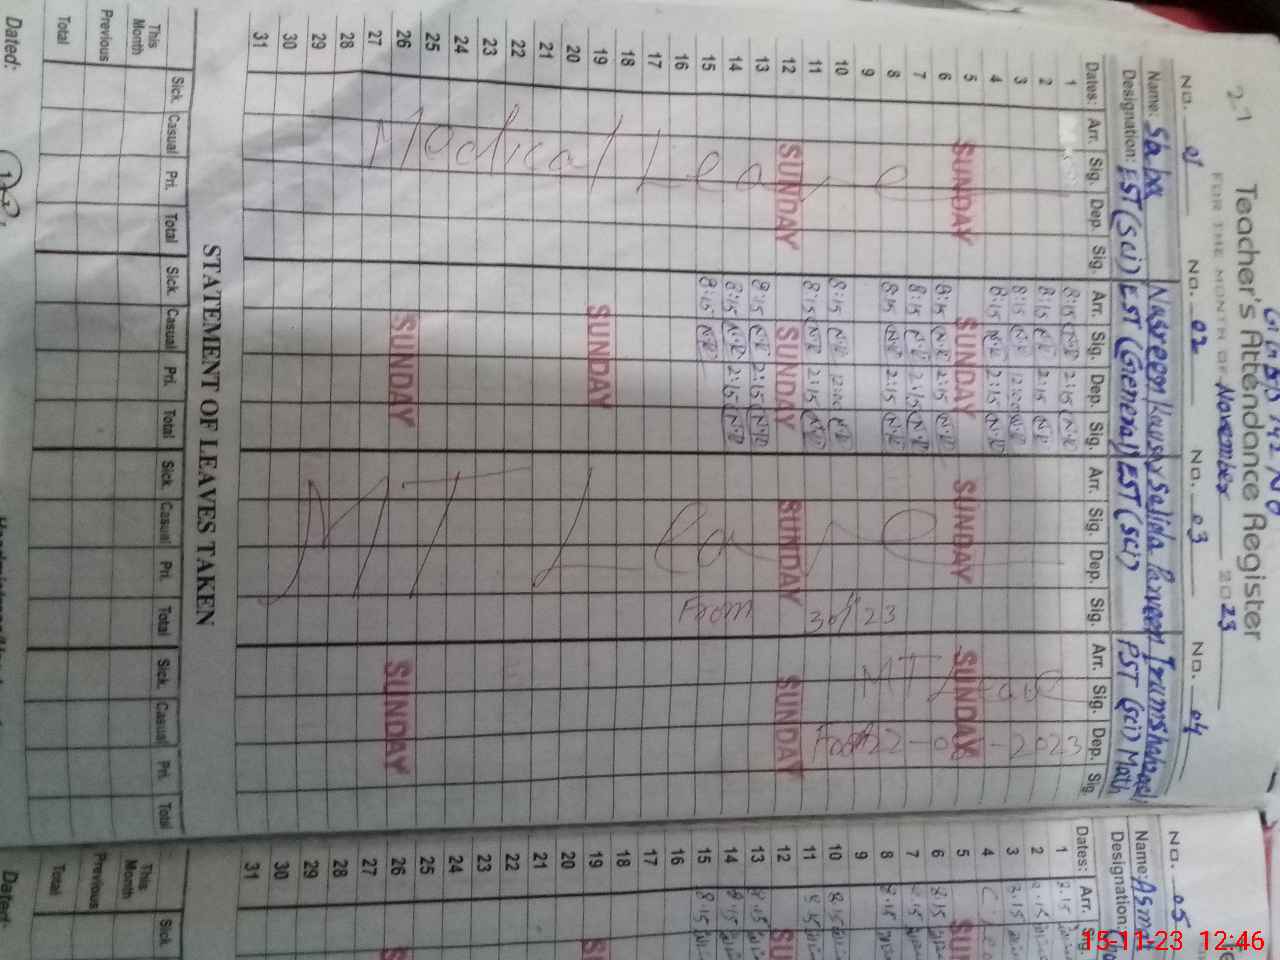 Teacher's Attendance Register
FOR THE MONTH OF November 2023
No. 01 No. 02 No. 03 No. 04
Name: Saba Nasreen Kausar Sajida Parveen
Designation: EST (Sci) EST (General) EST (SCI) PST (Sci) Math
Dates: Arr. Sig. Dep. Sig. Arr. Sig. Dep. Sig. Arr. Sig. Dep. Sig. Arr. Sig. Dep. Sig.
1 8:15 N.K 2:15 N.K
2 8:15 N.K 2:15 N.K
3 8:15 N.K 12:00 N.K
4 8:15 N.K 2:15 N.K
5 SUNDAY SUNDAY SUNDAY SUNDAY
6 8:15 N.K 2:15 N.K
7 8:15 N.K 2:15 N.K
8 8:15 N.K 2:15 N.K
9
10 8:15 N.K 12:00 N.K
11 8:15 N.K 2:15 N.K
12 SUNDAY SUNDAY SUNDAY SUNDAY
13 8:15 N.K 2:15 N.K
14 8:15 N.K 2:15 N.K
15 8:15 N.K
16
17
18
19 SUNDAY
20
21
22
23
24
25
26 SUNDAY SUNDAY
27
28
29
30
31
Medical Leave
MT Leave
From 23
MT Leave
2023
STATEMENT OF LEAVES TAKEN
Sick. Casual Pri. Total Sick. Casual Pri. Total Sick. Casual Pri. Total Sick. Casual Pri. Total
This Month
Previous
Total
Dated:
No. 05
Name: Asma
Designation:
Dates: Arr. Sig.
1 8:15
2
3 8:15
4
5 SU
6 8:15
7 8:15
8 8:15
9
10 8:15
11 8:15
12 SU
13 8:15
14 8:15
15 8:15
16
17
18
19 S
20
21
22
23
24
25
26 S
27
28
29
30
31
Sick
This Month
Previous
Total
Dated:
15-11-23 12:46